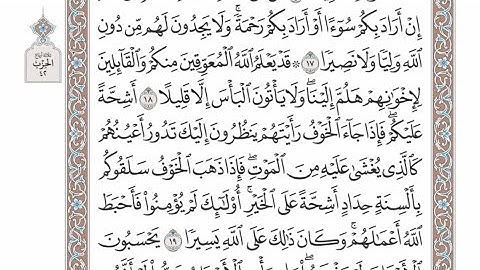 إِنْ أَرَادَ بِكُمْ سُوٓءًا أَوْ أَرَادَ بِكُمْ رَحْمَةً ۚ وَلَا يَجِدُونَ لَهُم مِّن دُونِ
ٱللَّهِ وَلِيًّا وَلَا نَصِيرًا ١٧ ۞ قَدْ يَعْلَمُ ٱللَّهُ ٱلْمُعَوِّقِينَ مِنكُمْ وَٱلْقَآئِلِينَ
لِإِخْوَٰنِهِمْ هَلُمَّ إِلَيْنَا ۖ وَلَا يَأْتُونَ ٱلْبَأْسَ إِلَّا قَلِيلًا ١٨ أَشِحَّةً
عَلَيْكُمْ ۖ فَإِذَا جَآءَ ٱلْخَوْفُ رَأَيْتَهُمْ يَنظُرُونَ إِلَيْكَ تَدُورُ أَعْيُنُهُمْ
كَٱلَّذِى يُغْشَىٰ عَلَيْهِ مِنَ ٱلْمَوْتِ ۖ فَإِذَا ذَهَبَ ٱلْخَوْفُ سَلَقُوكُم
بِأَلْسِنَةٍ حِدَادٍ أَشِحَّةً عَلَى ٱلْخَيْرِ ۚ أُو۟لَـٰٓئِكَ لَمْ يُؤْمِنُوا۟ فَأَحْبَطَ
ٱللَّهُ أَعْمَـٰلَهُمْ ۚ وَكَانَ ذَٰلِكَ عَلَى ٱللَّهِ يَسِيرًا ١٩ يَحْسَبُونَ
الحزب
٤٢